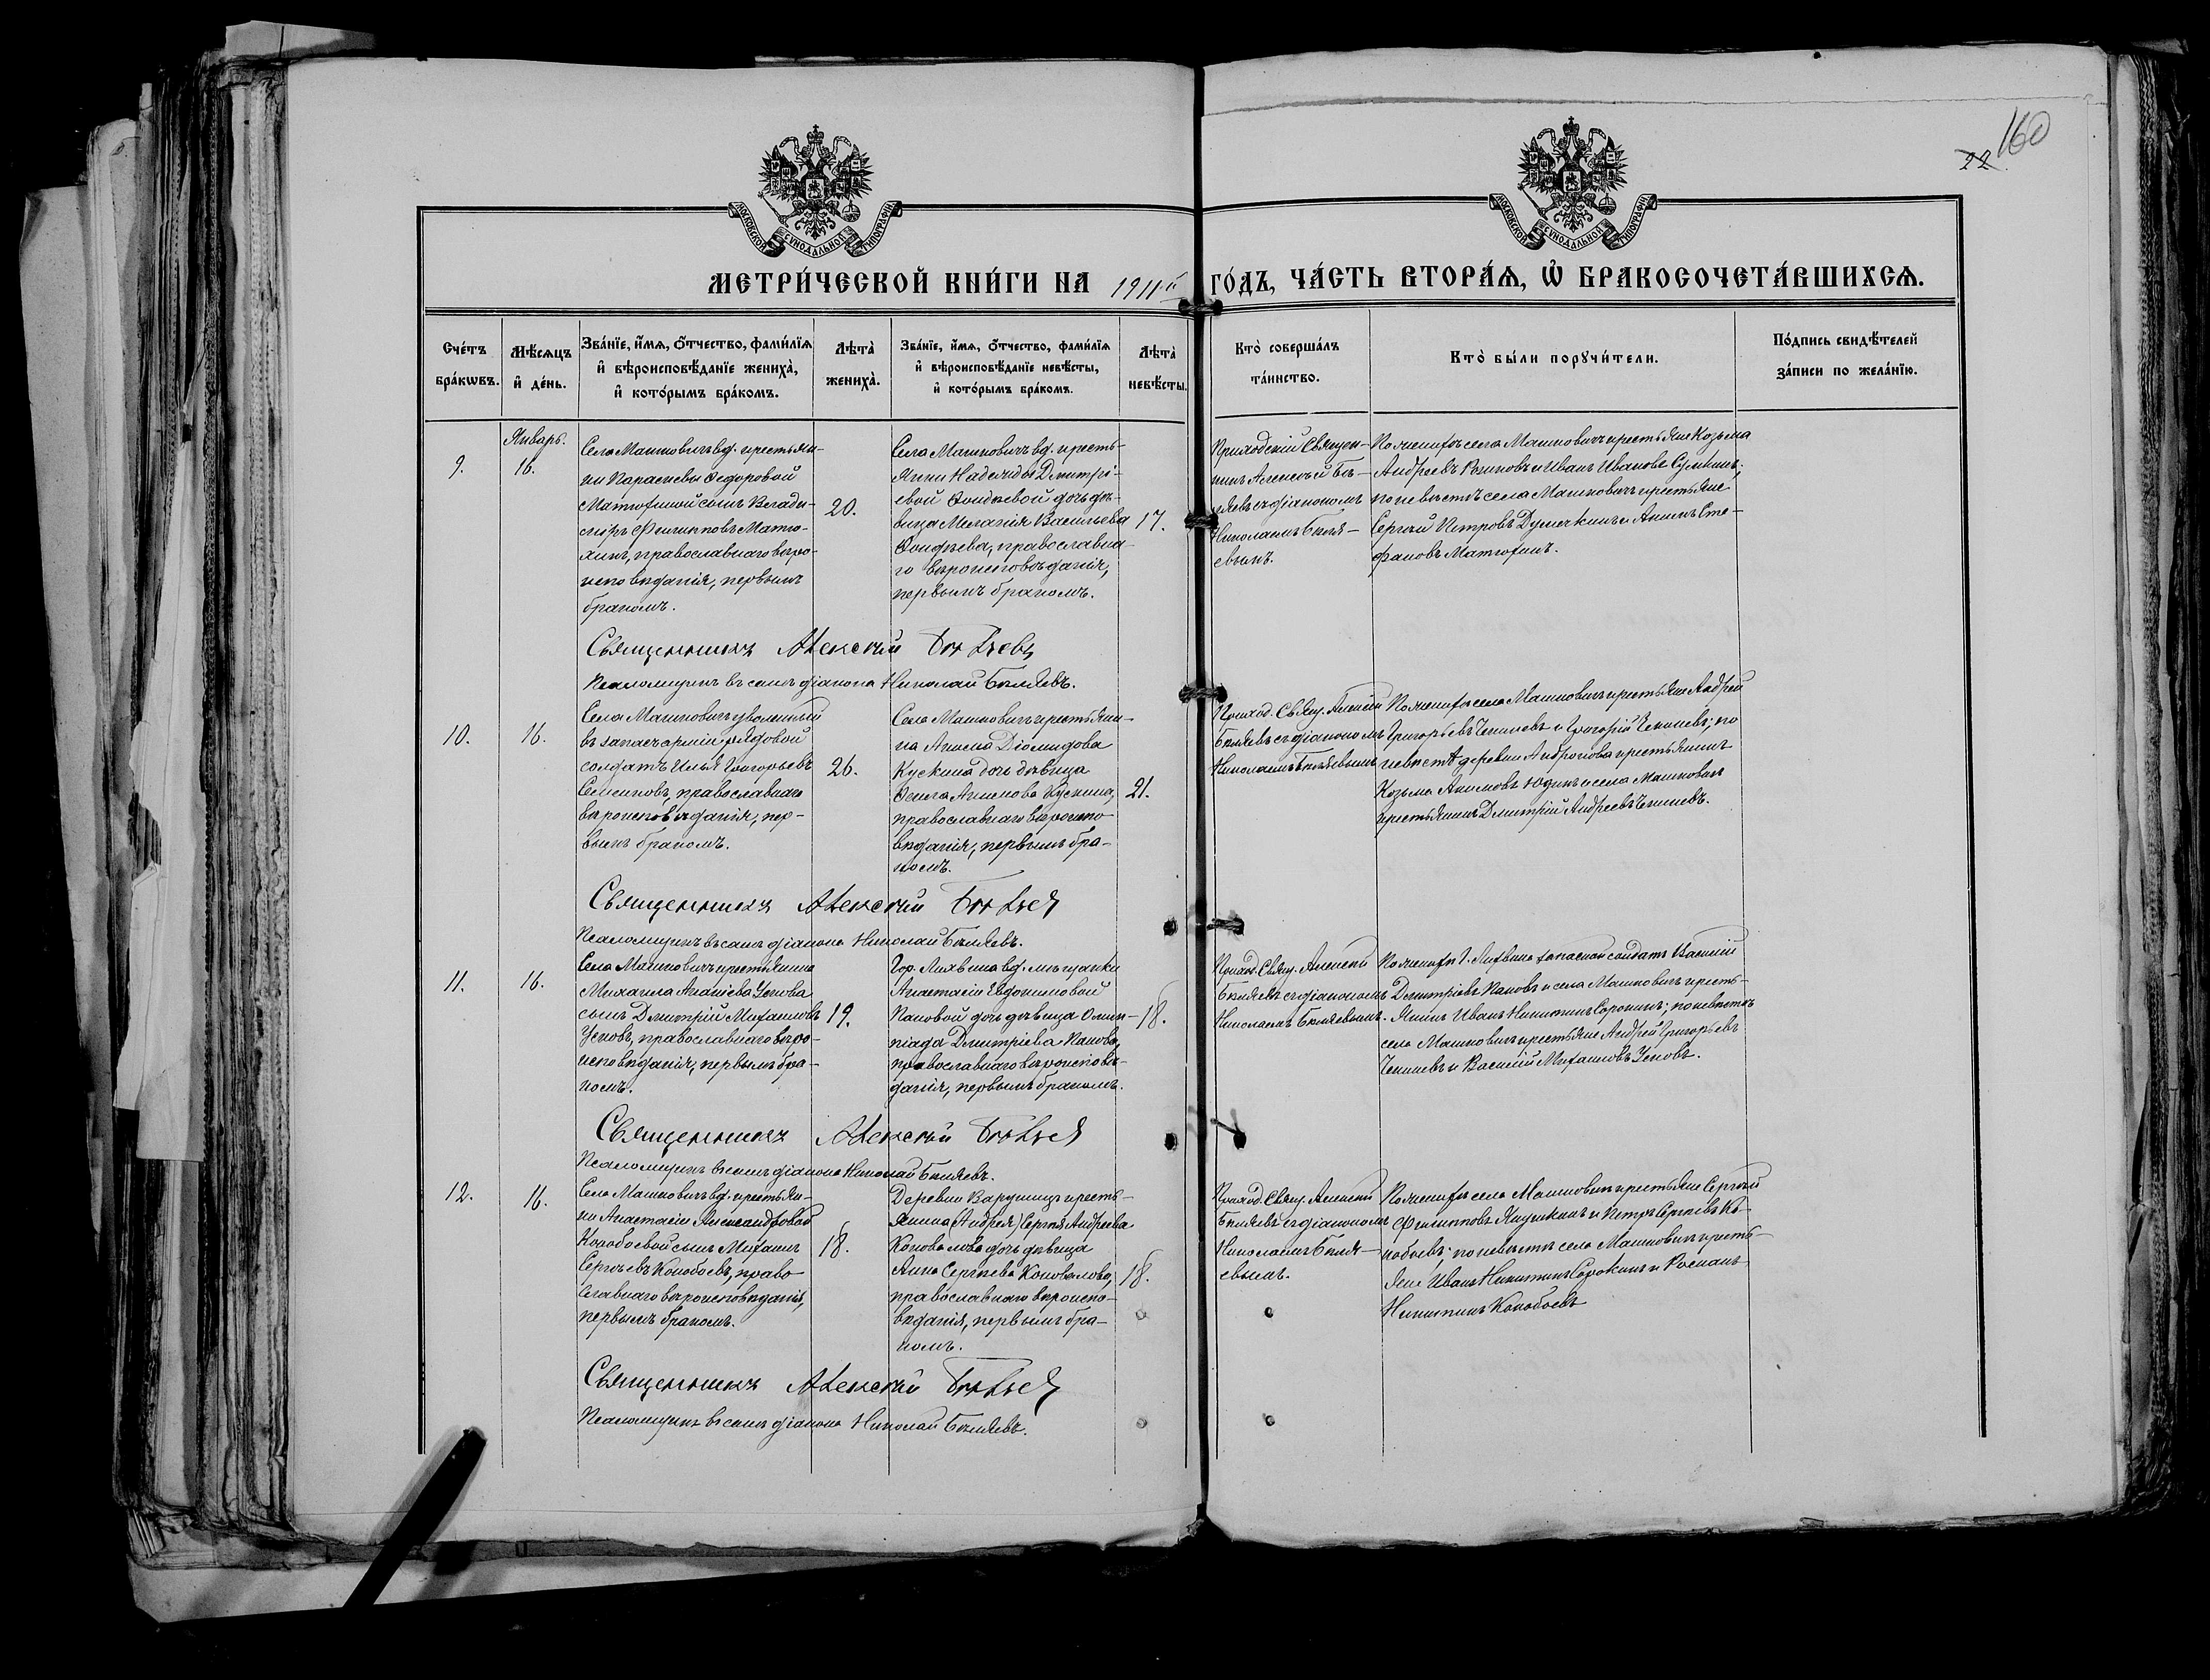 160
22
МОСКОВСКОЙ СѴНОДАЛЬНОЙ ТИПОГРАФІИ
МОСКОВСКОЙ СѴНОДАЛЬНОЙ ТИПОГРАФІИ
МЕТРИ́ЧЕСКОЙ КНИ́ГИ НА 1911й ГО́ДЪ, ЧА́СТЬ ВТОРА́Ѧ, Ѽ БРАКОСОЧЕТА́ВШИХСѦ.
Сче́тъ
бра́кѡвъ.
Мѣ́сѧцъ
и҆ де́нь.
Зва́нїе, и҆́мѧ, о҆́тчество, фами́лїѧ
и҆ вѣроисповѣ́данїе жениха̀,
и҆ кото́рымъ бра́комъ.
Лѣта̀
жениха̀.
Зва́нїе, и҆́мѧ, о҆́тчество, фами́лїѧ
и҆ вѣроисповѣ́данїе невѣ́сты,
и҆ кото́рымъ бра́комъ.
Лѣта̀
невѣ́сты.
Кто̀ соверша́лъ
та́инство.
Кто̀ бы́ли порꙋчи́тели.
По́дпись свидѣ́телей
за́писи по жела́нїю.
9.
Январь.
16.
Села Машковичъ вд. крестьян-
ки Параскевы Ѳедоровой
Матюхиной сынъ Влади-
міръ Филипповъ Матю-
хинъ, православнаго вѣро-
исповѣданія, первымъ
бракомъ.
20.
Села Машковичъ вд. кресть-
янки Надежды Дмитрі-
евой дочь дѣ-
вица Меланія Васильева
православна-
го вѣроисповѣданія,
первымъ бракомъ.
17.
Приходскій Священ-
никъ Алексѣй Бѣ-
ляевъ съ діакономъ
Николаемъ Бѣля-
евымъ.
По женихѣ села Машковичъ крестьяне Козьма
Андреевъ и Иванъ Ивановъ
по невѣстѣ села Машковичъ крестьяне
Сергѣй Петровъ Думачкинъ и Акимъ Сте-
фановъ Матюхинъ.
Священникъ Алексѣй Бѣляевъ
Псаломщикъ въ санѣ діакона Николай Бѣляевъ.
10.
16.
Села Машковичъ уволенный
въ запасъ арміи рядовой
солдатъ Илья Григорьевъ
православнаго
вѣроисповѣданія, пер-
вымъ бракомъ.
26.
Села Машковичъ крестьяни-
на Акима Діомидова
Кускина дочь дѣвица
Акимова Кускина,
православнаго вѣроиспо-
вѣданія, первымъ бра-
комъ.
21.
Приход. Свящ. Алексѣй
Бѣляевъ съ діакономъ
Николаемъ Бѣляевымъ
По женихѣ села Машковичъ крестьяне Андрей
Григорьевъ и Григорій по
невѣстѣ деревни Андронова крестьянинъ
Козьма Акимовъ Юдинъ и села Машковичъ
крестьянинъ Дмитрій Андреевъ
Священникъ Алексѣй Бѣляевъ
Псаломщикъ въ санѣ діакона Николай Бѣляевъ.
11.
16.
Села Машковичъ крестьянина
Михаила Ананіева Ускова
сынъ Дмитрій Михаиловъ
Усковъ, православнаго вѣро-
исповѣданія, первымъ бра-
комъ.
19.
Гор. Лихвина вд. мѣщанки
Анастасіи Евдокимовой
Пановой дочь дѣвица Олим-
піада Дмитріева Панова,
православнаго вѣроисповѣ-
данія, первымъ бракомъ.
18.
Приход. Свящ. Алексѣй
Бѣляевъ съ діакономъ
Николаемъ Бѣляевымъ.
По женихѣ г. Лихвина запасной солдатъ Василій
Дмитріевъ Пановъ и села Машковичъ кресть-
янинъ Иванъ Никитинъ Сорокинъ; по невѣстѣ
села Машковичъ крестьяне Андрей Григорьевъ
и Василій Михаиловъ Усковъ.
Священникъ Алексѣй Бѣляевъ
Псаломщикъ въ санѣ діакона Николай Бѣляевъ.
12.
16.
Села Машковичъ вд. крестьян-
ки Анастасіи Александровой
Конобоевой сынъ Михаилъ
Сергѣевъ Конобоевъ, право-
славнаго вѣроисповѣданія,
первымъ бракомъ.
18.
Деревни Варушицъ кресть-
янина (Андрея) Сергѣя Андреева
Коновалова дочь дѣвица
Анна Сергѣева Коновалова,
православнаго вѣроиспо-
вѣданія, первымъ бра-
комъ.
18.
Приход. Свящ. Алексѣй
Бѣляевъ съ діакономъ
Николаемъ Бѣля-
евымъ.
По женихѣ села Машковичъ крестьяне Сергѣй
Филипповъ и Петръ Сергѣевъ Ко-
нобоевъ; по невѣстѣ села Машковичъ кресть-
яне Иванъ Никитинъ Сорокинъ и Романъ
Никитинъ Конобоевъ
Священникъ Алексѣй Бѣляевъ
Псаломщикъ въ санѣ діакона Николай Бѣляевъ.